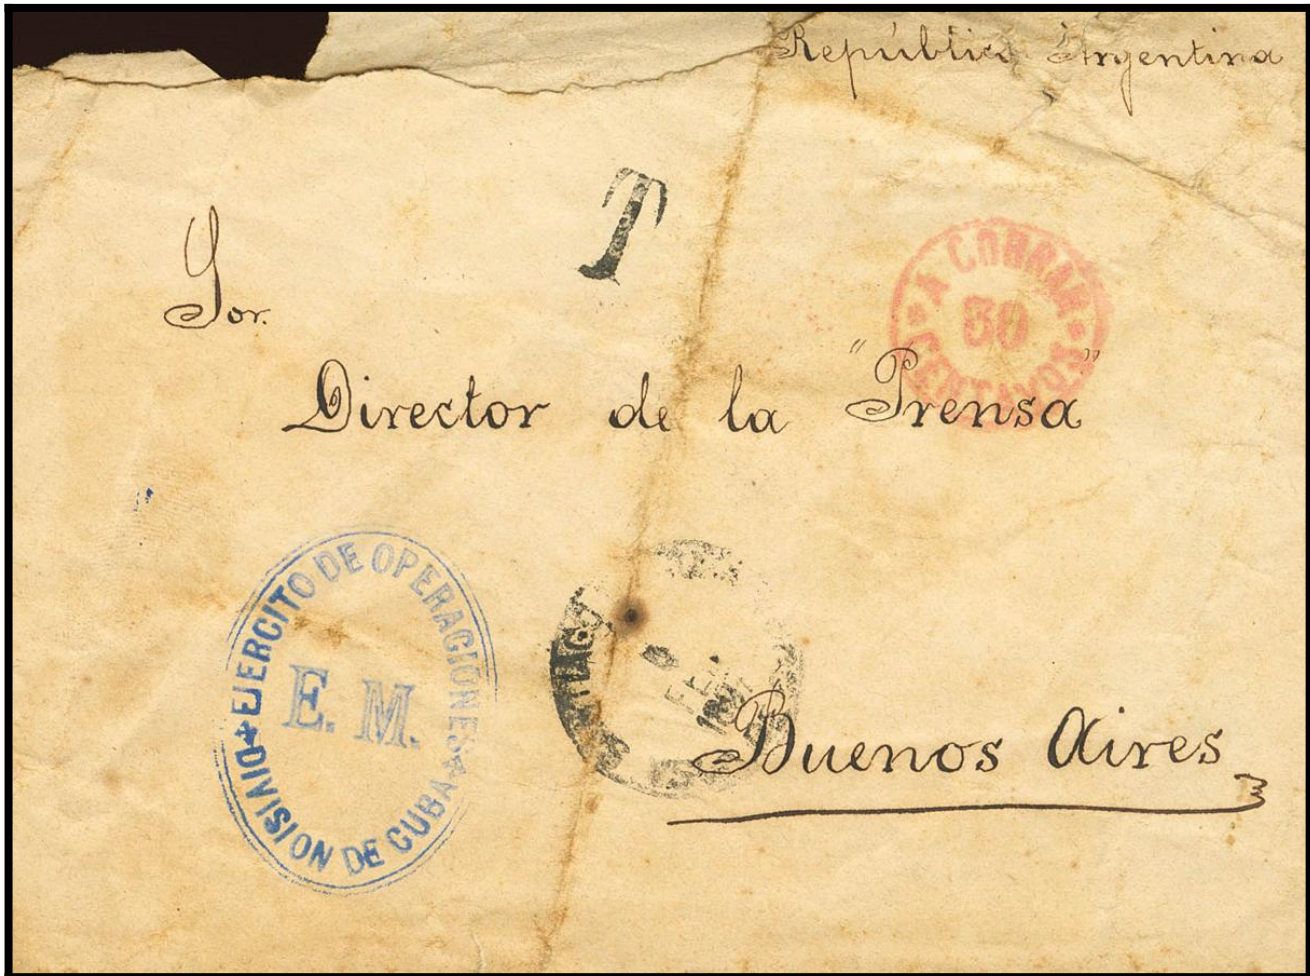 República Argentina
T
Sor.
A COBRAR
30
CENTAVOS
Director de la "Prensa"
EJERCITO DE OPERACIONES
E. M.
DIVISION DE CUBA
Buenos Aires